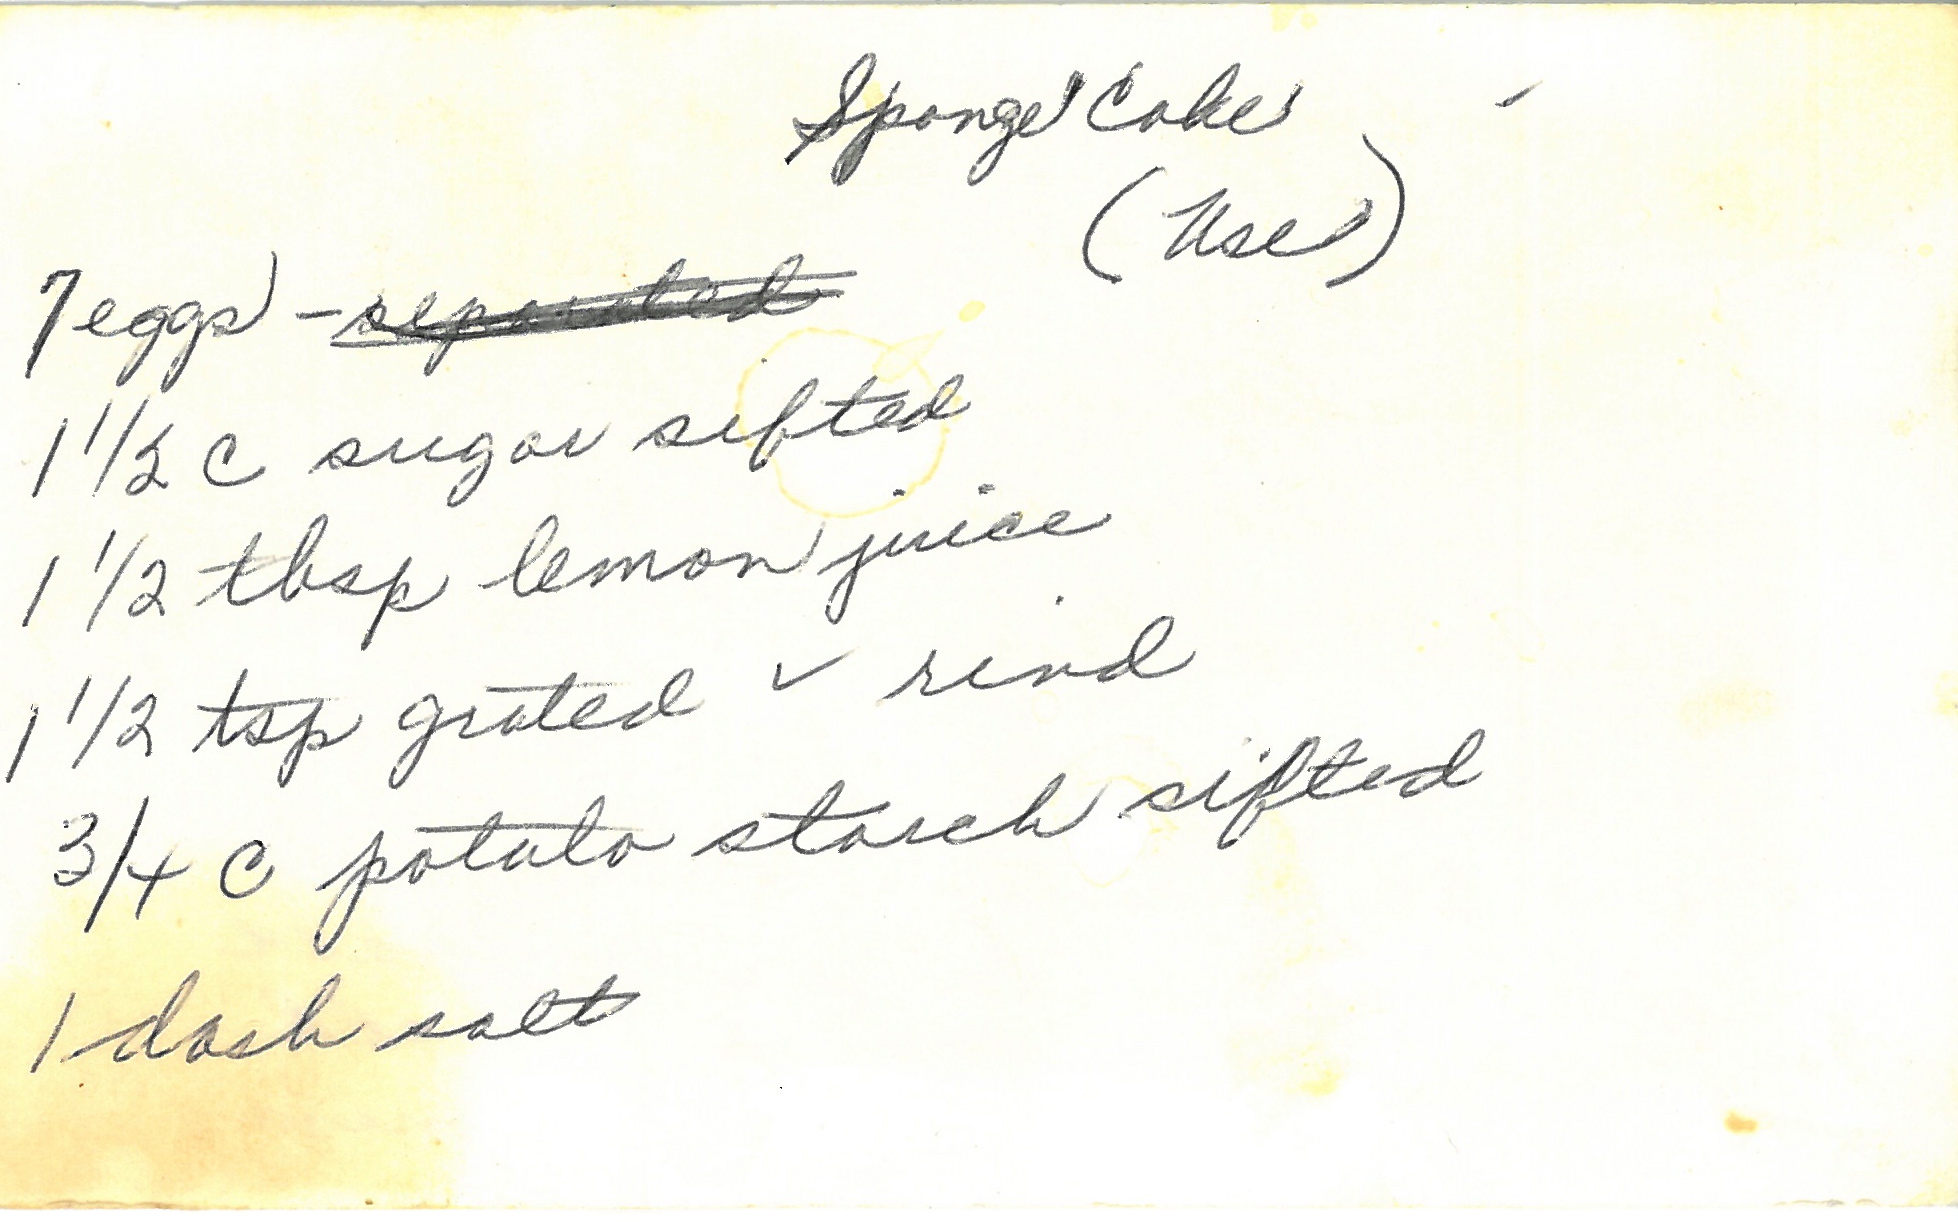 Sponge Cake
(Use)
7 eggs - separated
1 1/2 c sugar sifted
1 1/2 tbsp lemon juice
1 1/2 tsp grated ✓ rind
3/4 c potato starch sifted
1 dash salt